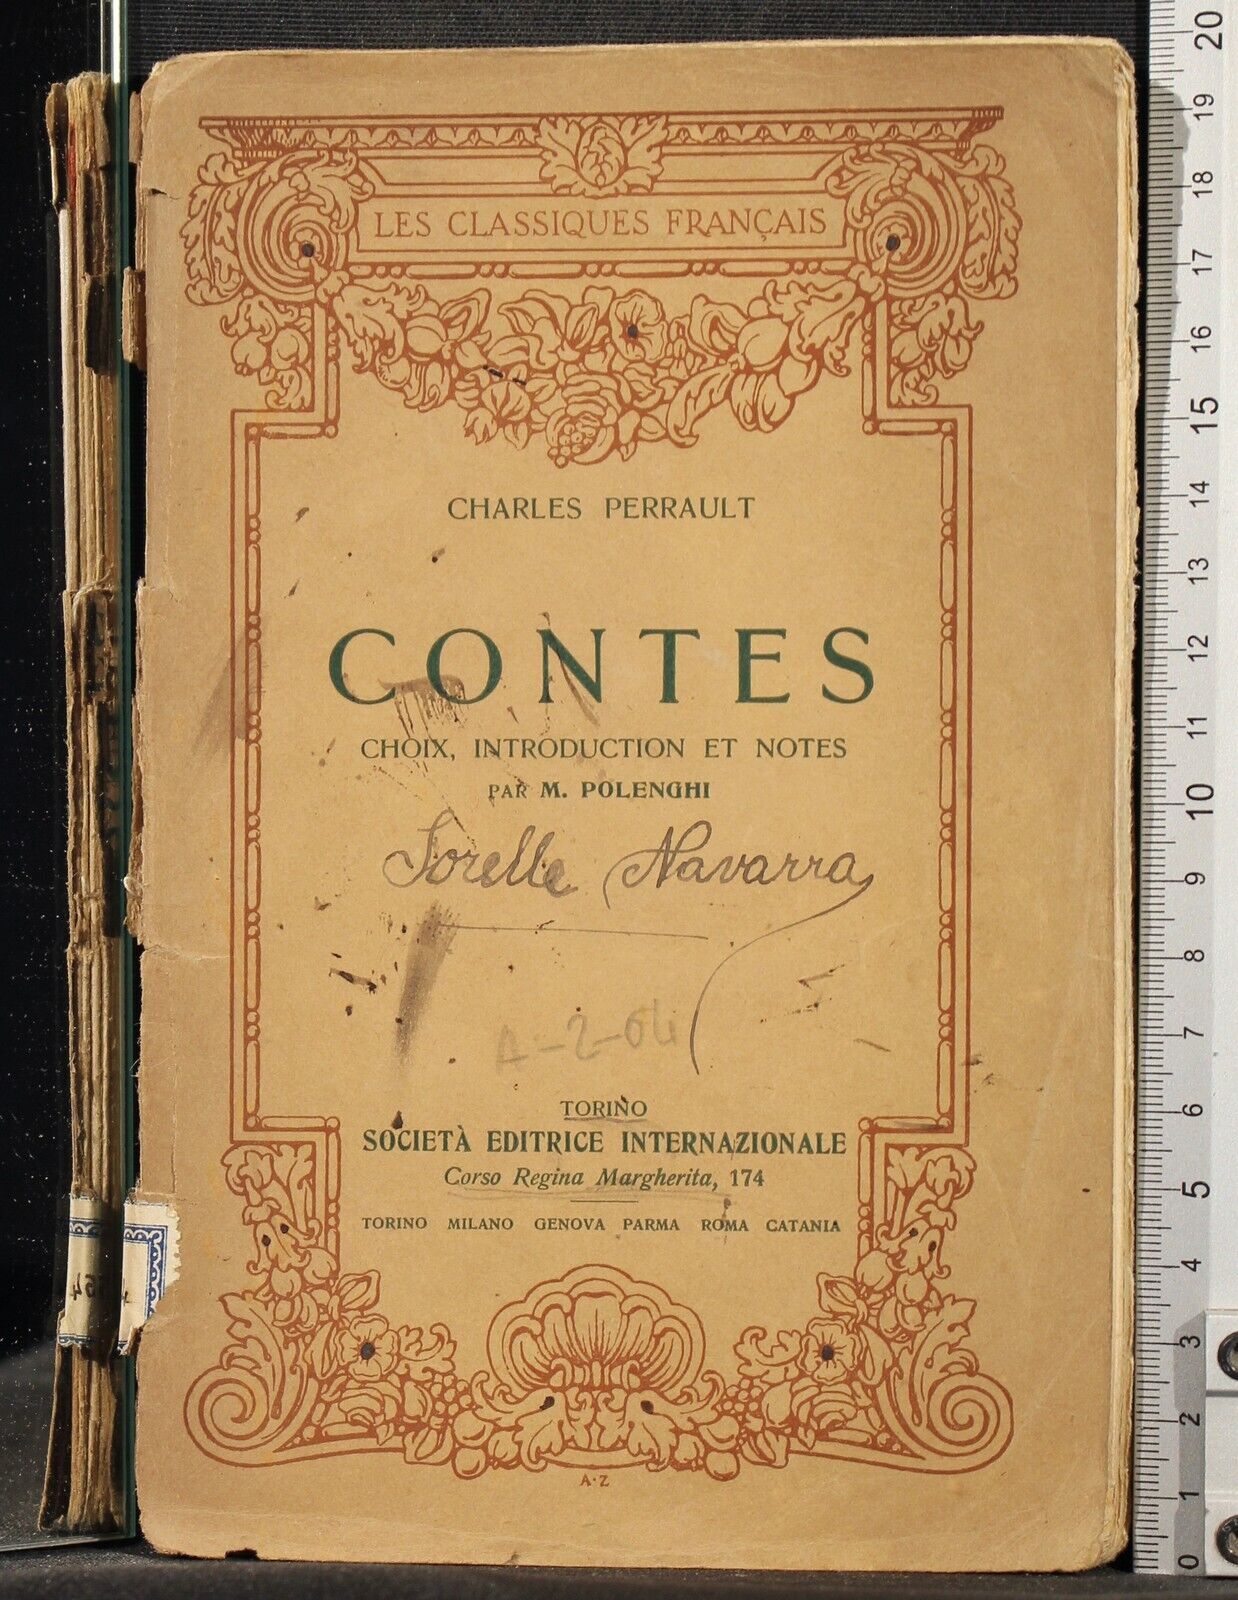 LES CLASSIQUES FRANÇAIS
CHARLES PERRAULT
CONTES
CHOIX, INTRODUCTION ET NOTES
PAR M. POLENGHI
Sorelle Navarra
A-2-64
TORINO
SOCIETÀ EDITRICE INTERNAZIONALE
Corso Regina Margherita, 174
TORINO MILANO GENOVA PARMA ROMA CATANIA
A·Z
20
19
18
17
16
15
14
13
12
11
10
9
8
7
6
5
4
3
2
1
0